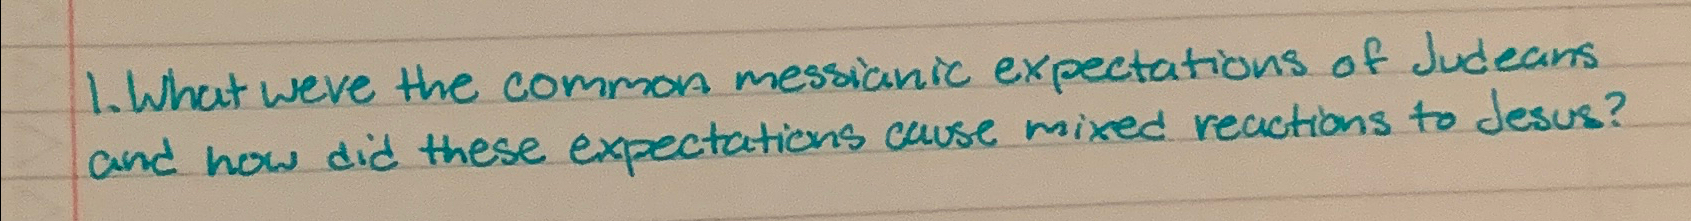 1. What were the common messianic expectations of Judeans
and how did these expectations cause mixed reactions to Jesus?